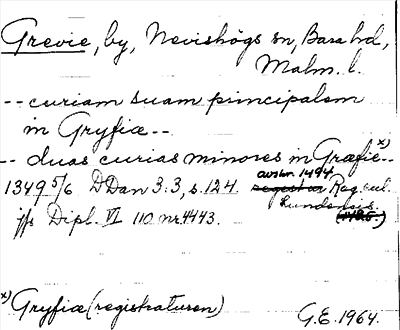 Grevie, by, Nevishögs sn, Bara hd,
Malm. l.
-- curiam suam principalem
in Gryfiæ --
-- duas curias minores in Græfie x) --
avskr 1494
1349 5/6 DDan 3:3, s. 124. Reg. eccl.
Lundensis.
jfr Dipl. VI 110 nr. 4443.
x) Gryfiæ (registraturen)
G.E. 1964.